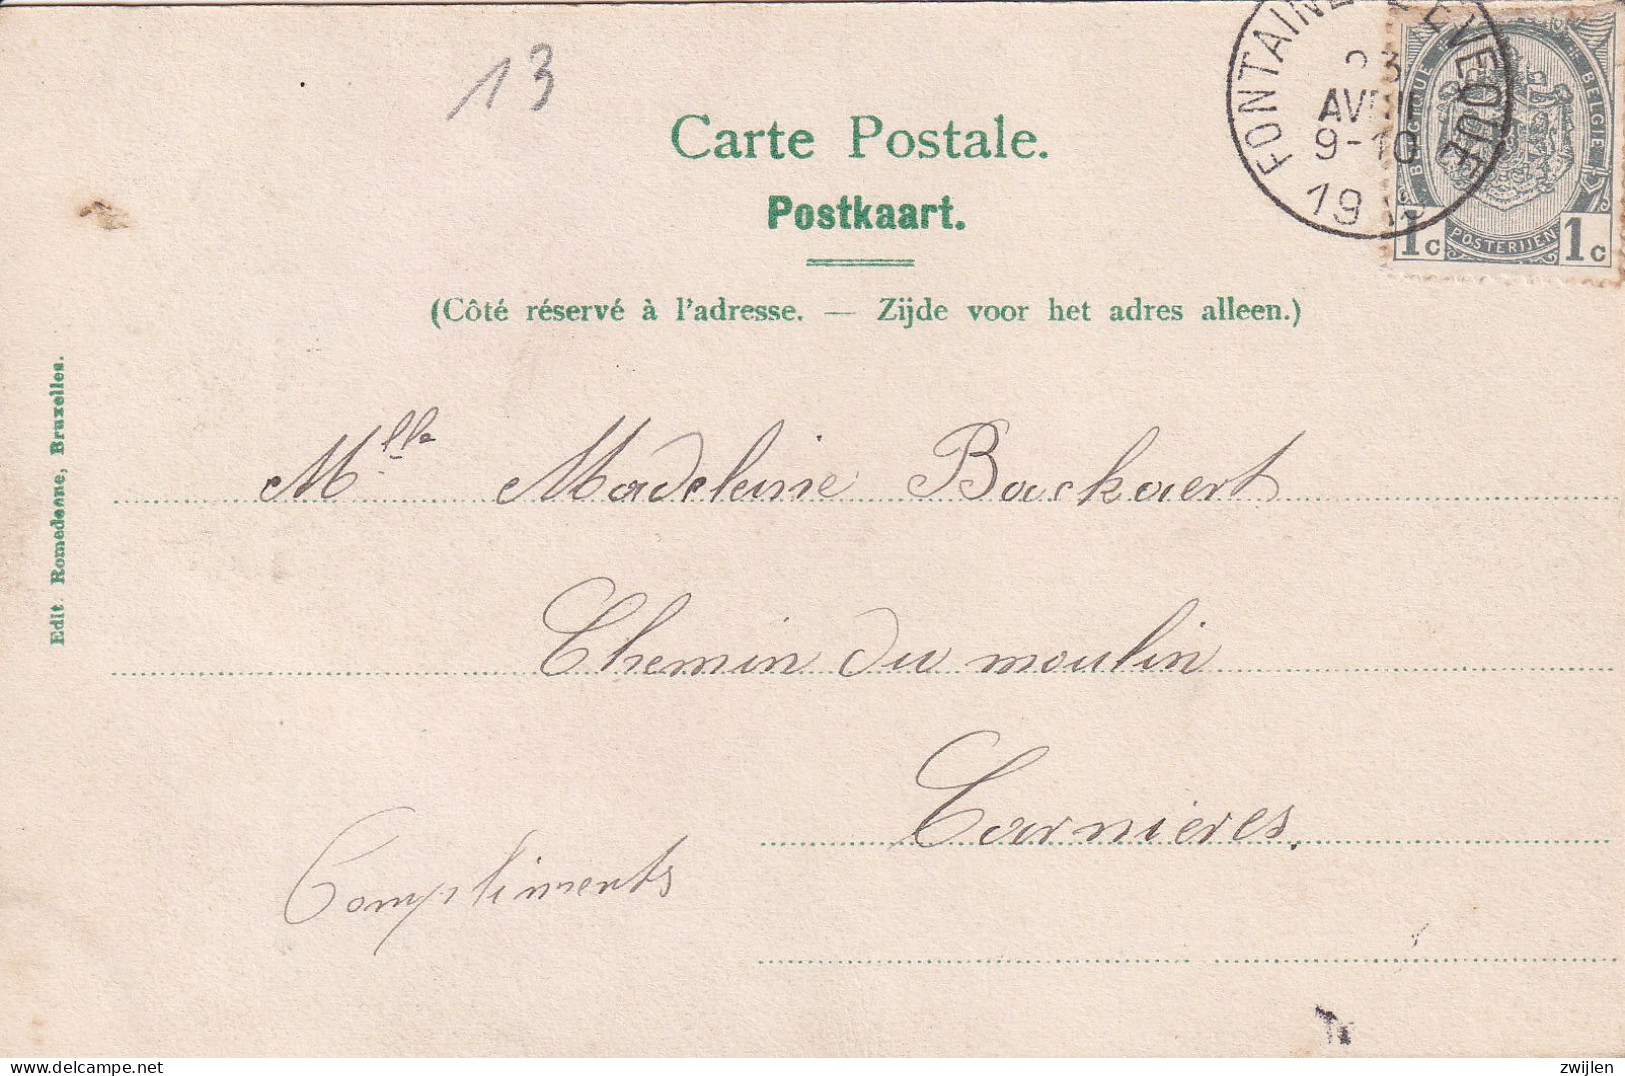 13
Carte Postale.
Postkaart.
(Côté réservé à l'adresse. — Zijde voor het adres alleen.)
FONTAINE L'EVEQUE
23
AVRIL
9-10
19
BELGIQUE BELGIE
POSTERIJEN
1c 1c
Edit. Romedenne, Bruxelles.
Mlle Madeleine Backaert
Chemin du moulin
Carnières.
Compliments
zwijlen